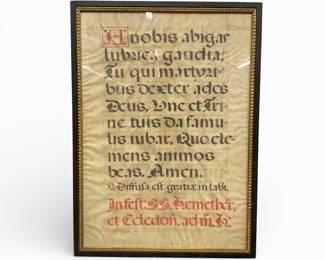 A nobis abigat
lubrica gaudia,
Tu qui martyri-
bus dexter ades
Deus, Vne et Tri-
ne tuis da famu-
lis iubar, Quo cle-
mens animos
beas. Amen.
V. Diffusa est gratia in labi.
In fest. SS. Hemether.
et Celedon. ad m. H.